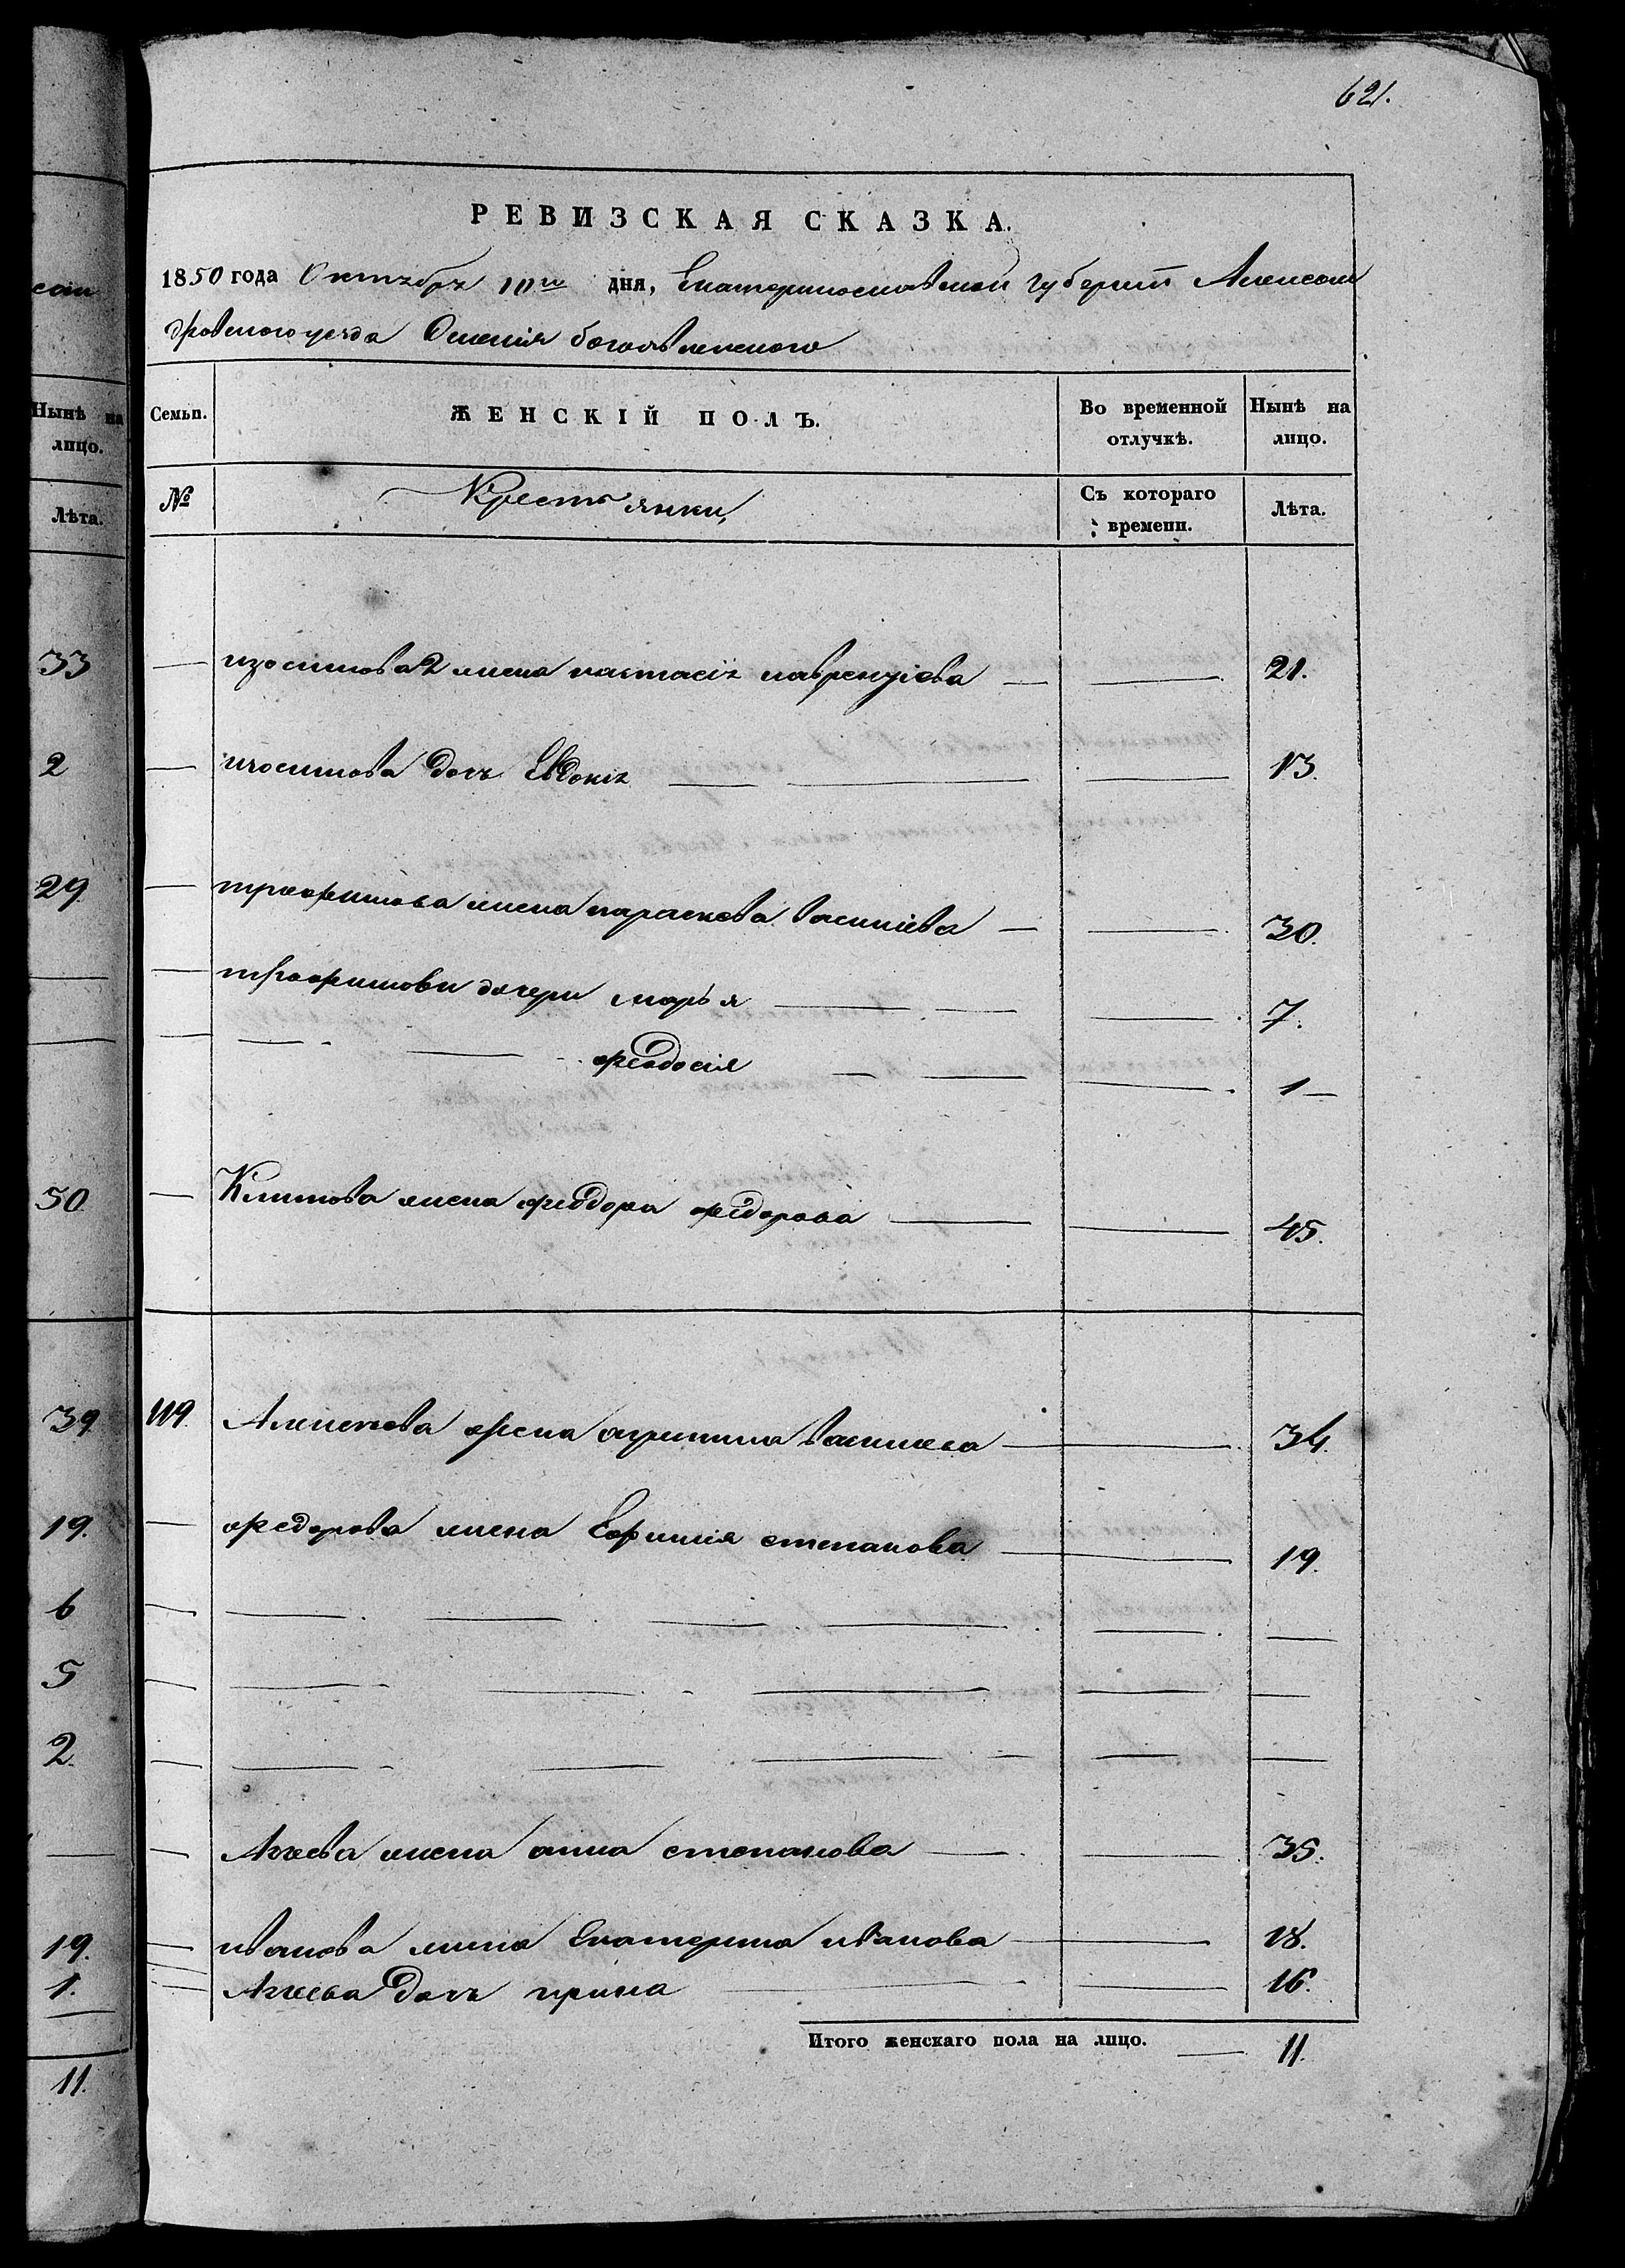 621.
РЕВИЗСКАЯ СКАЗКА.
1850 года Октября 10го дня, Екатеринославской губернии Алексан
дровского уезда Селения богоявленского
Семьи. ЖЕНСКІЙ ПОЛЪ. Во временной отлучкѣ. Нынѣ на лицо.
№ Крестьянки, Съ котораго времени. Лѣта.
— изосимова 2 жена настасія лаврентіева — — 21.
— изосимова дочь Евдокія — — 13.
— трофимова жена параскева василіева — — 30.
— трофимови дочери марья — — 7.
— — — феодосія — — 1 —
— Климова жена феодора федорова — — 45.
119. Алексеева жена агрипина василиева — 34.
— федорова жена Ефимия степанова — 19.
— Агеева жена анна степанова — — 35.
— иванова жена Екатерина иванова — 18.
— Агеева дочь ирина — — 16.
Итого женскаго пола на лицо. — 11.
сан
Нынѣ на
лицо.
Лѣта.
33
2
29
50
39
19.
6
5
2.
19.
1.
11.